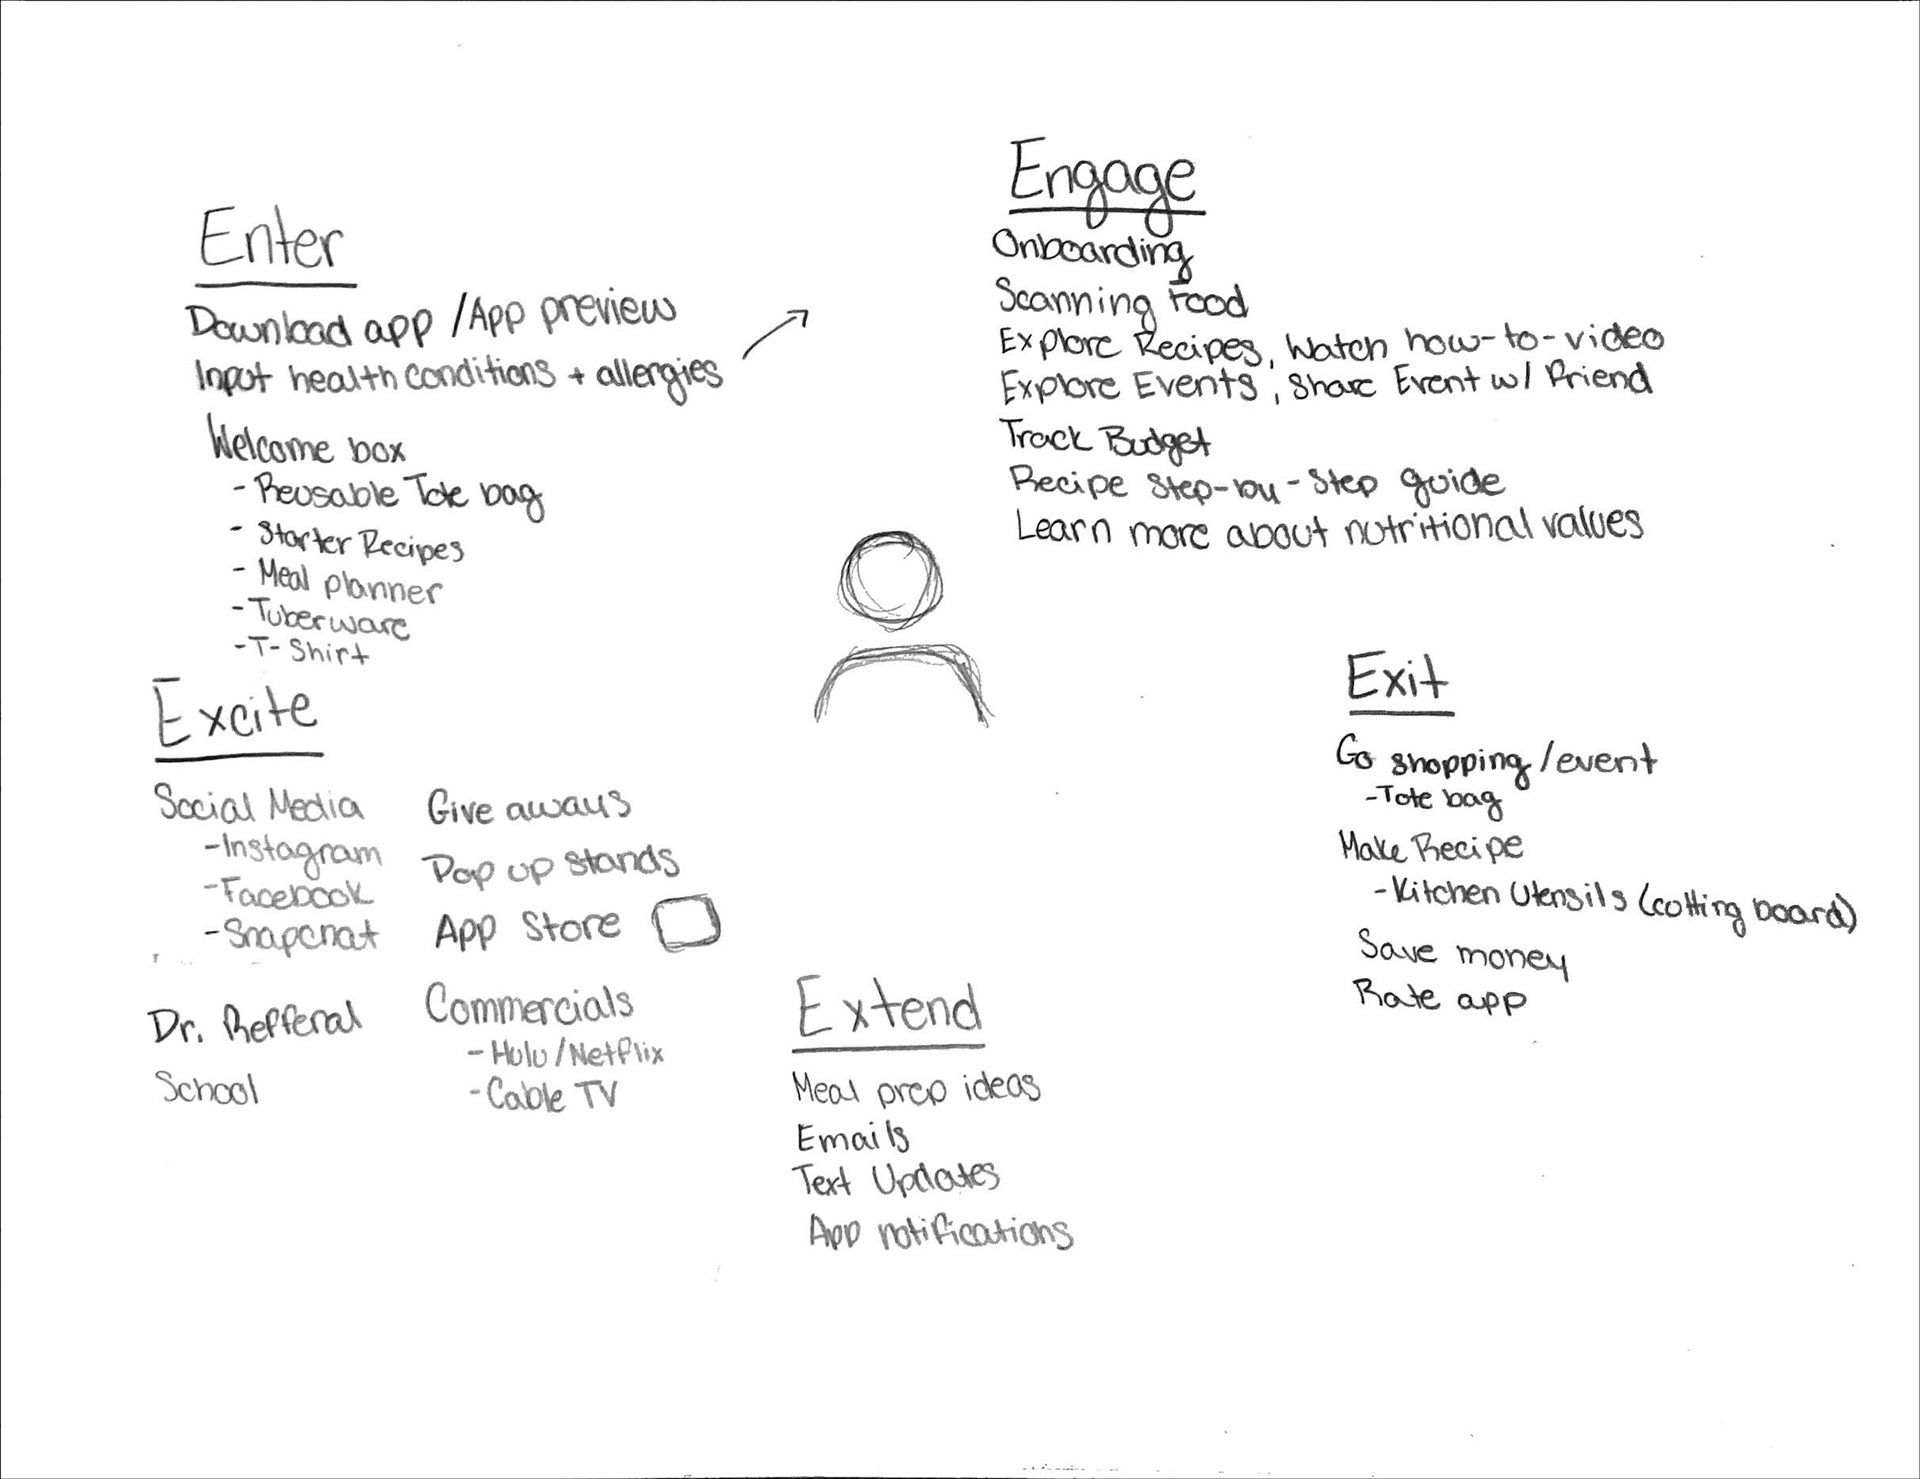 Enter
Download app / App preview
Input health conditions + allergies
Welcome box
- Reusable Tote bag
- Starter Recipes
- Meal planner
- Tuberware
- T-Shirt
Engage
Onboarding
Scanning Food
Explore Recipes, Watch how-to-video
Explore Events, Share Event w/ Friend
Track Budget
Recipe Step-by-Step guide
Learn more about nutritional values
Excite
Social Media
- Instagram
- Facebook
- Snapchat
Dr. Refferal
School
Give aways
Pop up stands
App Store
Commercials
- Hulu/Netflix
- Cable TV
Extend
Meal prep ideas
Emails
Text Updates
App notifications
Exit
Go shopping/event
- Tote bag
Make Recipe
- Kitchen Utensils (cutting board)
Save money
Rate app